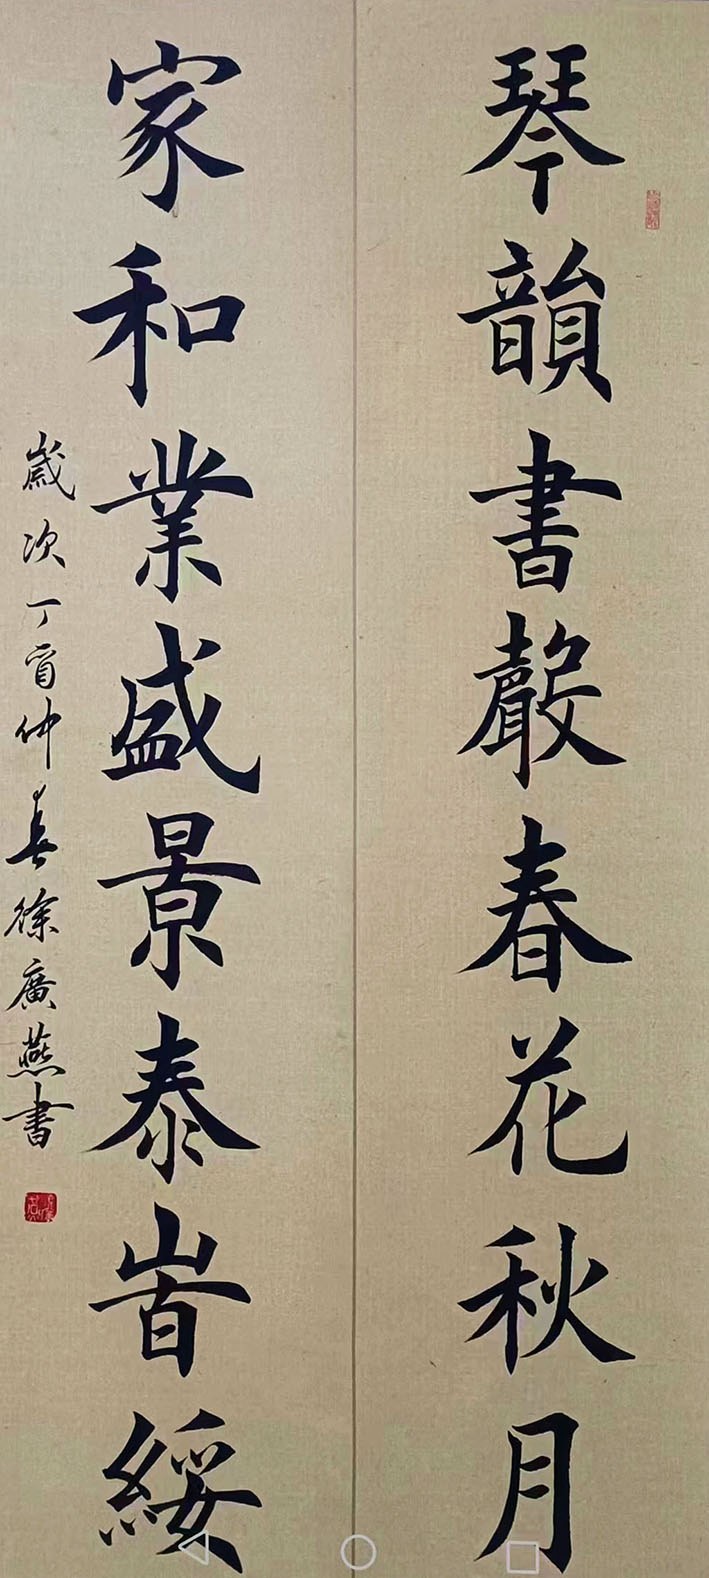 琴韻書聲春花秋月
家和業盛景泰峕綏
歲次丁酉仲春徐廣燕書